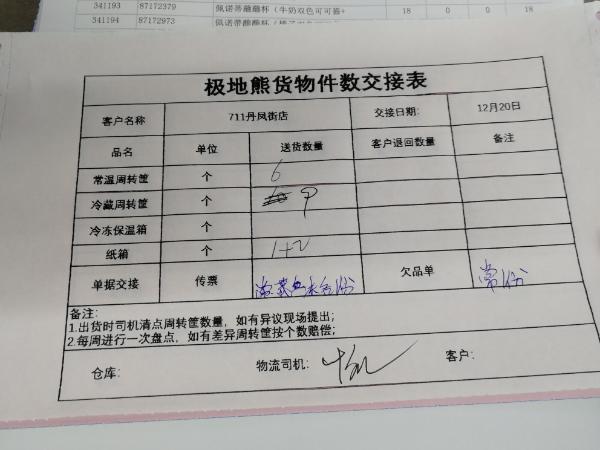 341193 87172379 佩诺蒂蘸蘸杯（牛奶双色可可酱+ 18 0 0 18
341194 87172973
极地熊货物件数交接表
客户名称 711丹凤街店 交接日期: 12月20日
品名 单位 送货数量 客户退回数量 备注
常温周转筐 个 6
冷藏周转筐 个
冷冻保温箱 个
纸箱 个 1+2
单据交接 传票 欠品单
备注:
1.出货时司机清点周转筐数量，如有异议现场提出;
2.每周进行一次盘点，如有差异周转筐按个数赔偿;
仓库: 物流司机: 客户: